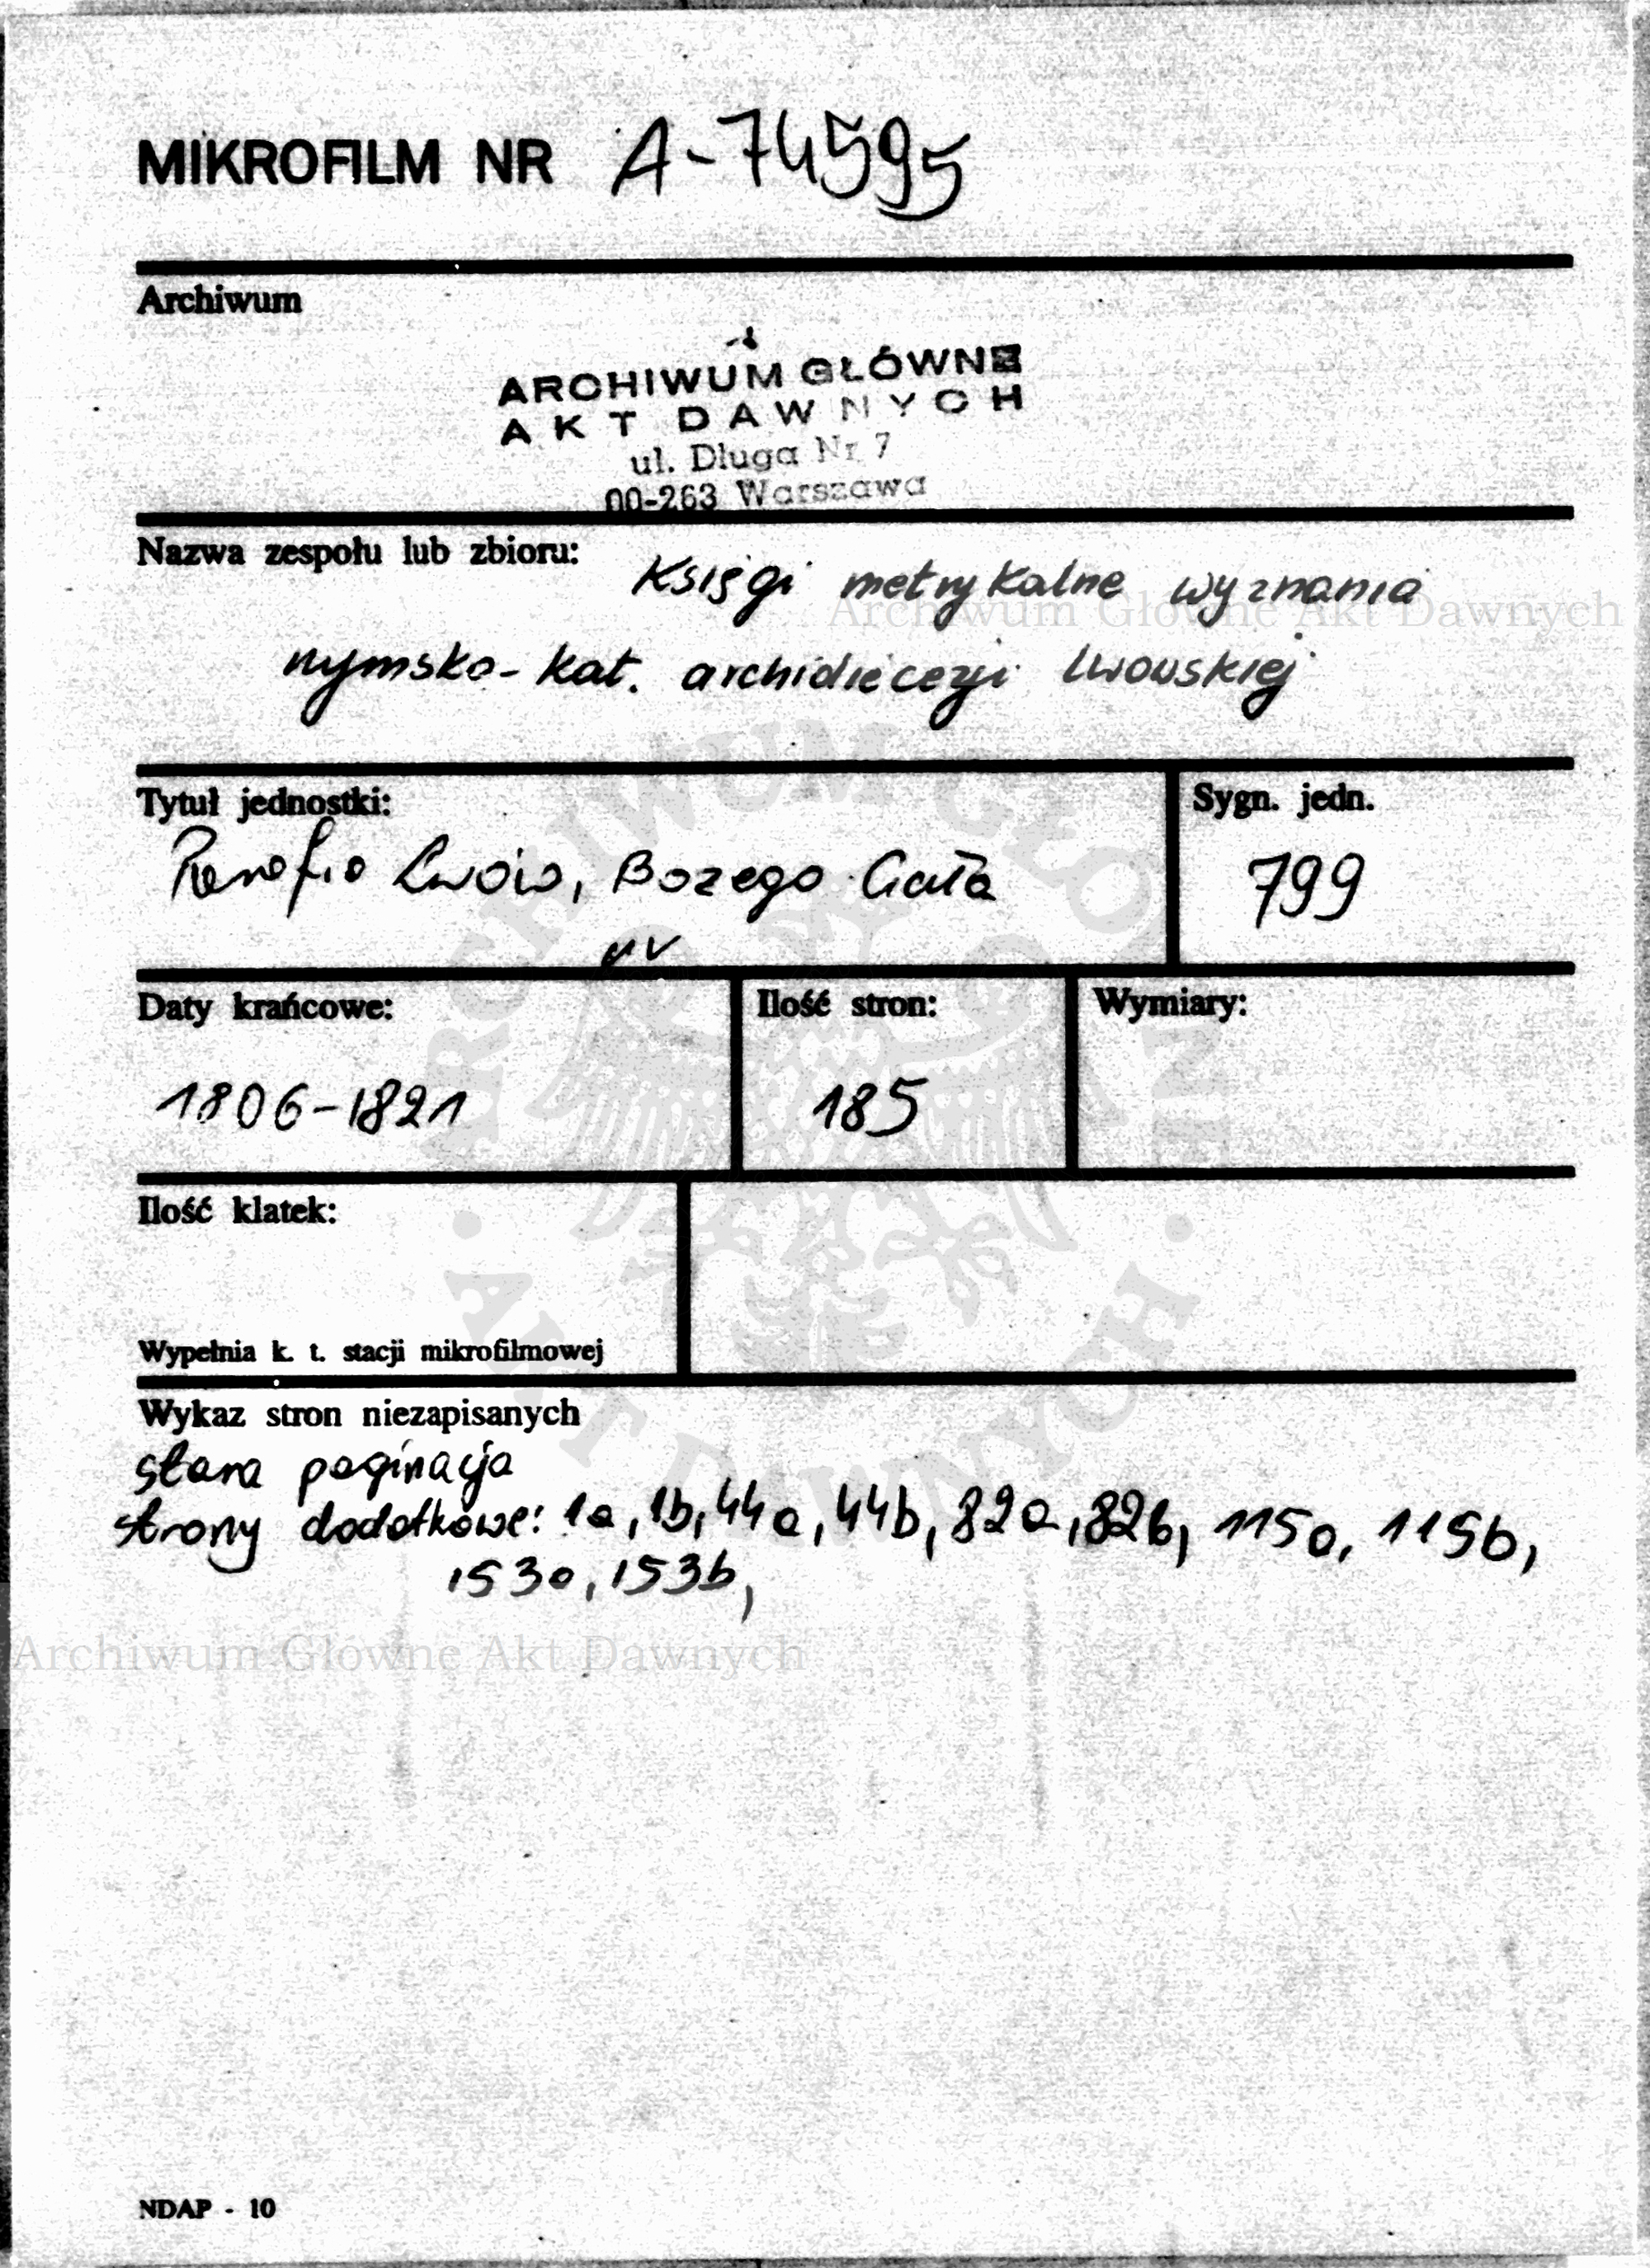 MIKROFILM NR A-74595
Archiwum
ARCHIWUM GŁÓWNE
AKT DAWNYCH
ul. Długa Nr 7
00-263 Warszawa
Nazwa zespołu lub zbioru: Księgi metrykalne wyznania
Archiwum Główne Akt Dawnych
rzymsko-kat. archidiecezji lwowskiej
Tytuł jednostki:
Sygn. jedn.
Parafia Lwów, Bożego Ciała
799
Daty krańcowe:
Ilość stron:
Wymiary:
1806-1821
185
Ilość klatek:
Wypełnia k. t. stacji mikrofilmowej
ARCHIWUM GŁÓWNE · AKT DAWNYCH ·
Wykaz stron niezapisanych
stara paginacja
strony dodatkowe: 1a, 1b, 44a, 44b, 82a, 82b, 115a, 115b,
153a, 153b,
Archiwum Główne Akt Dawnych
NDAP - 10